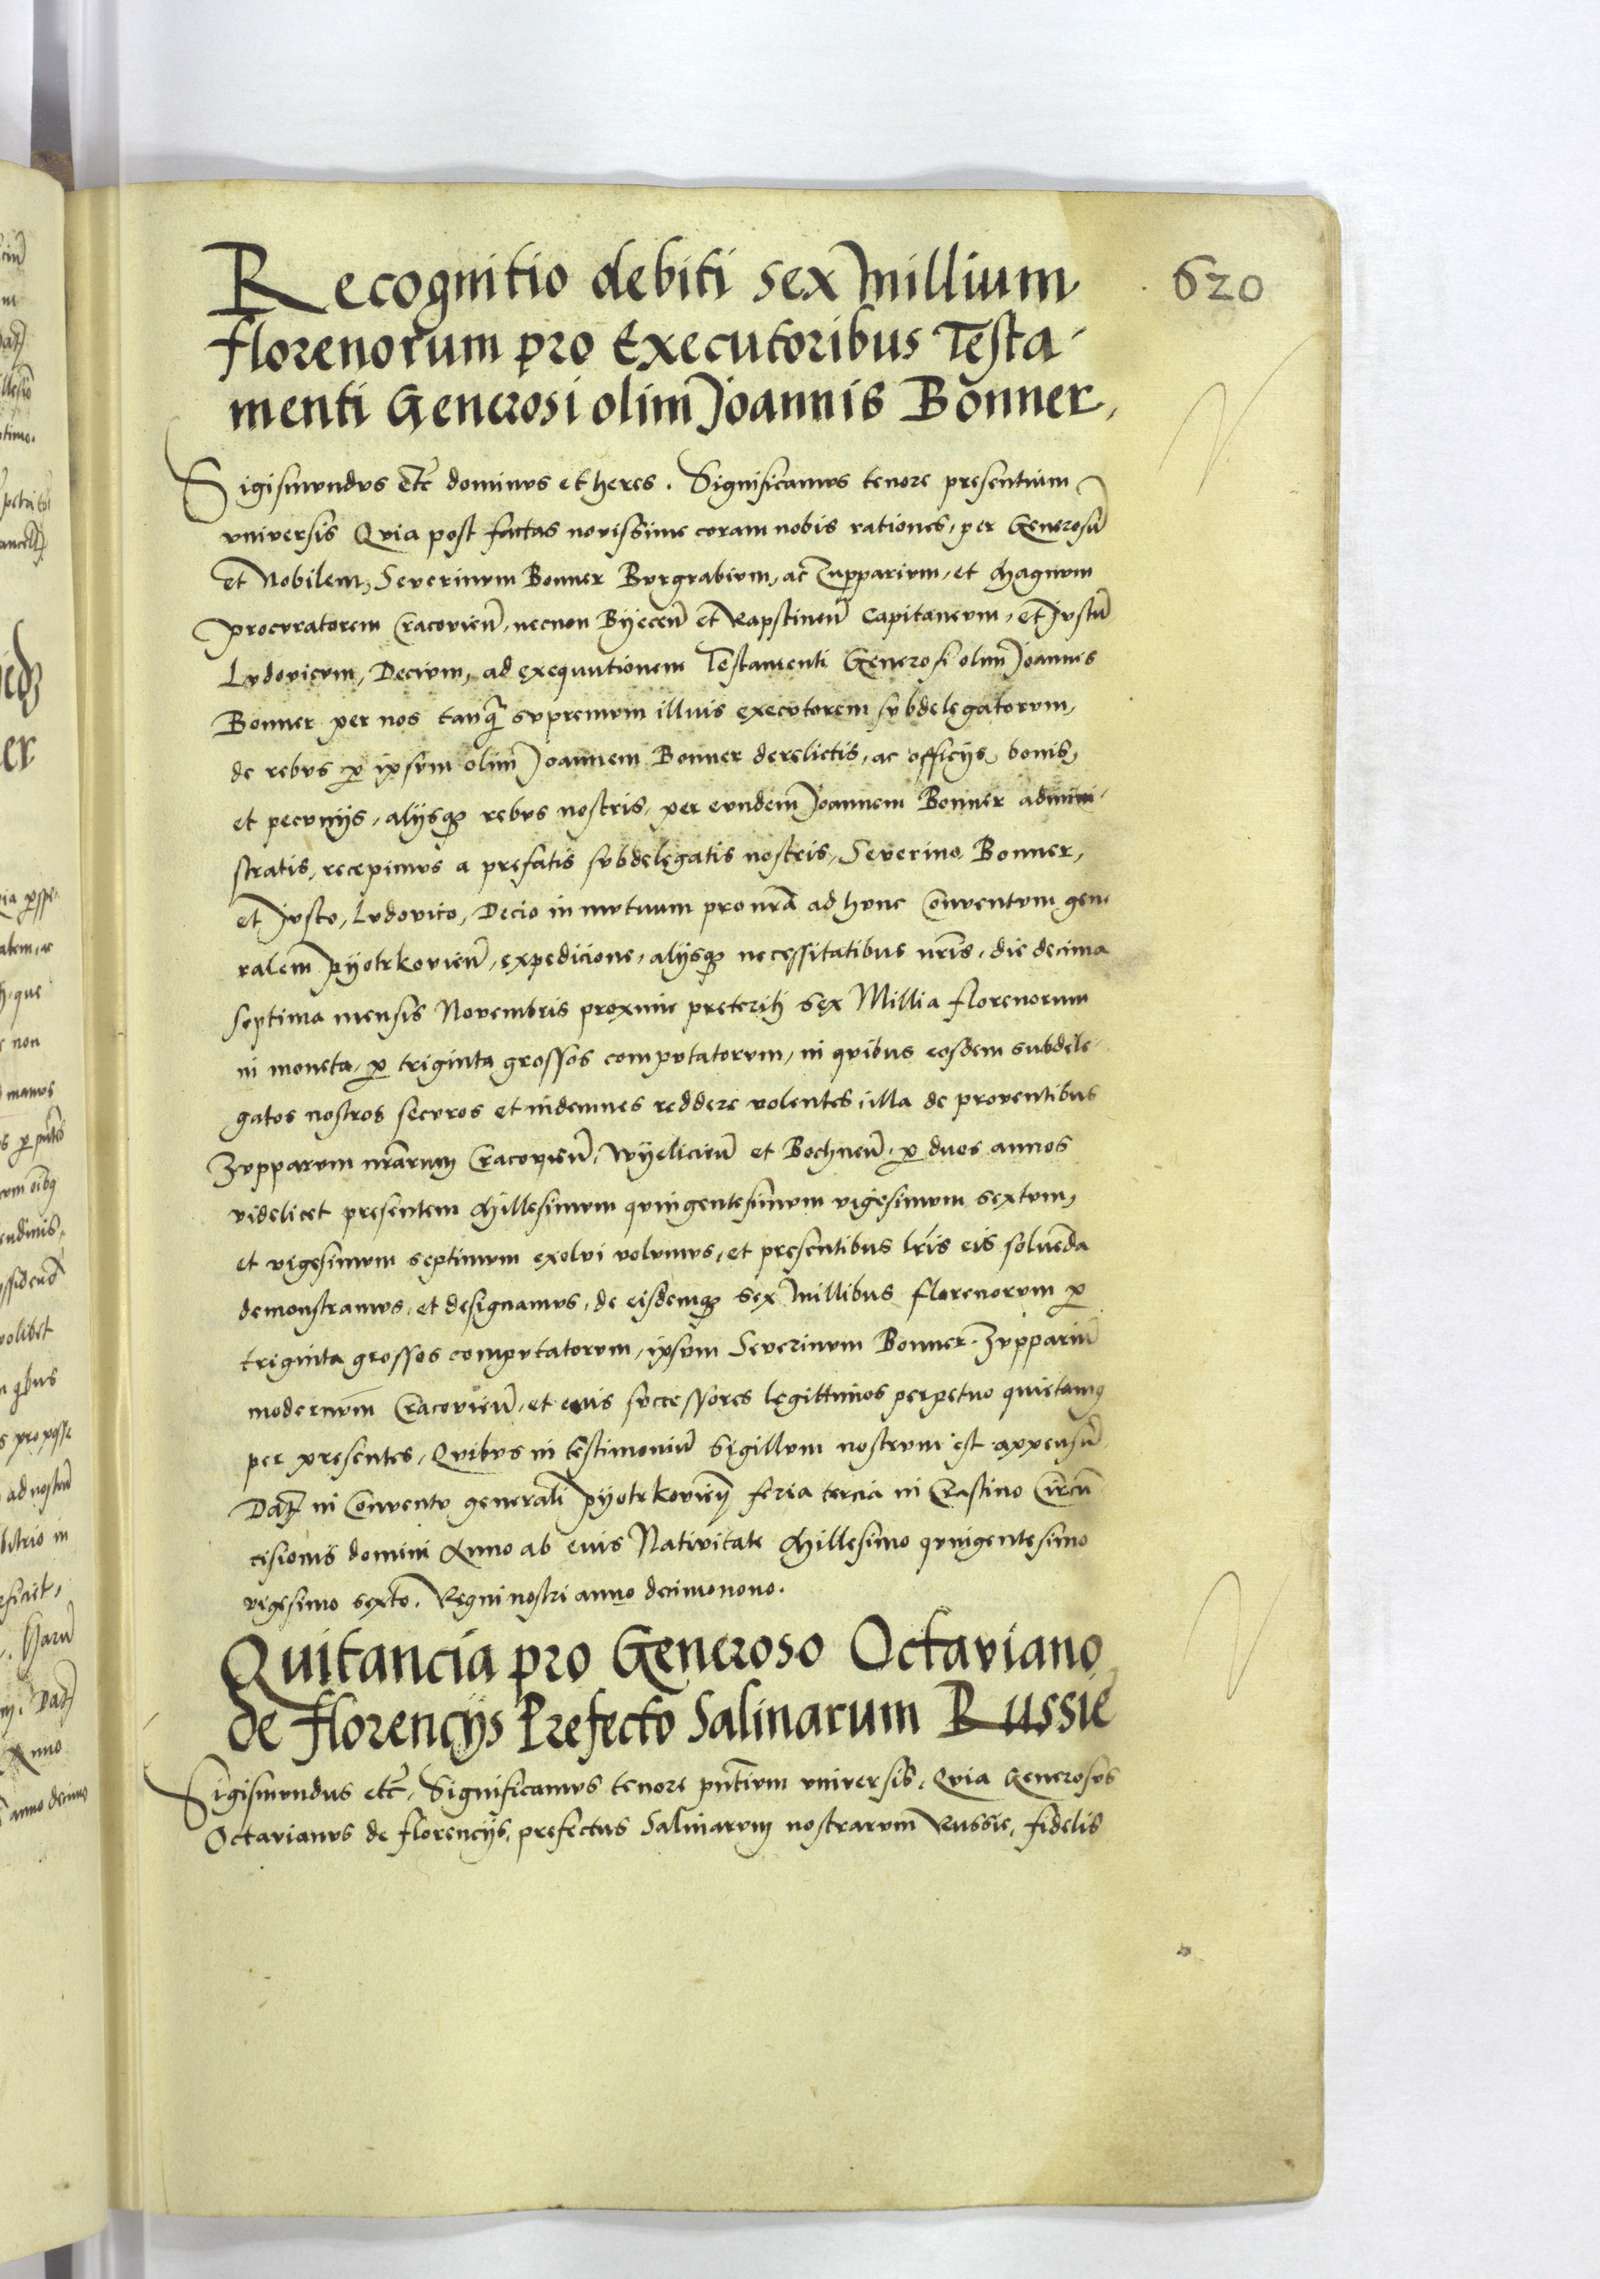 620
Recognitio debiti sex Millium
florenorum pro Executoribus Testa-
menti Generosi olim Joannis Bonner,
Sigismundus etc̃ dominus et heres. Significamus tenore presentium
vniversis Qvia post factas novissime coram nobis rationes, per Generosū
et Nobilem, Severinvm Bonner Bvrgrabivm, ac Zupparivm, et Magnvm
procvratorem Cracovieñ, necnon Byeceñ et Rapstineñ Capitanevm, et Jvstū
Lvdovicvm, Decivm, ad exequutionem Testamenti Generosi olim Joannis
Bonner per nos tanq̃ svpremvm illius execvtorem svbdelegatorvm,
de rebvs ꝑ ipsvm olim Joannem Bonner derelictis, ac officijs, bonis,
et pecvnijs, alijsqꝫ rebvs nostris, per evndem Joannem Bonner admini-
stratis, recepimvs a prefatis svbdelegatis nostris, Severino Bonner,
et Jvsto, Lvdovico, Decio in mvtuum pro nr̃a ad hvnc Conventvm gene
ralem pyotrkovieñ, expedicione, alijsqꝫ necessitatibus nr̃is, die decima
septima mensis Novembris proxime preteriti sex Millia florenorum
in moneta, ꝑ triginta grossos compvtatorvm, in qvibus eosdem subdele-
gatos nostros secvros et indemnes reddere volentes, illa de proventibus
Zvpparvm nr̃arum Cracovieñ, Wyelicieñ et Bochneñ, ꝑ dvos annos
videlicet presentem Millesimvm qvingentesimvm vigesimvm sextvm,
et vigesimvm septimvm exolvi volvmvs, et presentibus lr̃is eis solvēda
demonstramvs, et designamvs, de eisdemqꝫ sex Millibus florenorvm ꝑ
triginta grossos compvtatorvm, ipsvm Severinvm Bonner Zvppariū
modernvm Cracovieñ, et eius svccessores legittimos perpetvo quietamꝰ
per presentes, Qvibvs in testimoniū Sigillvm nostrvm est appensū
Dat̃ in Conventv generali pyotrkovieñ feria tercia in Crastino Circū
cisionis domini Anno ab eius Nativitate Millesimo qvingentesimo
vigesimo sexto. Regni nostri anno decimonono.
Quitancia pro Generoso Octaviano
de florencijs Prefecto Salinarum Russie
Sigismvndus etc̃, Significamvs tenore pñtivm vniversis, Qvia Generosvs
Octavianvs de florencijs, prefectus Salinarvm nostrarvm Russie, fidelis